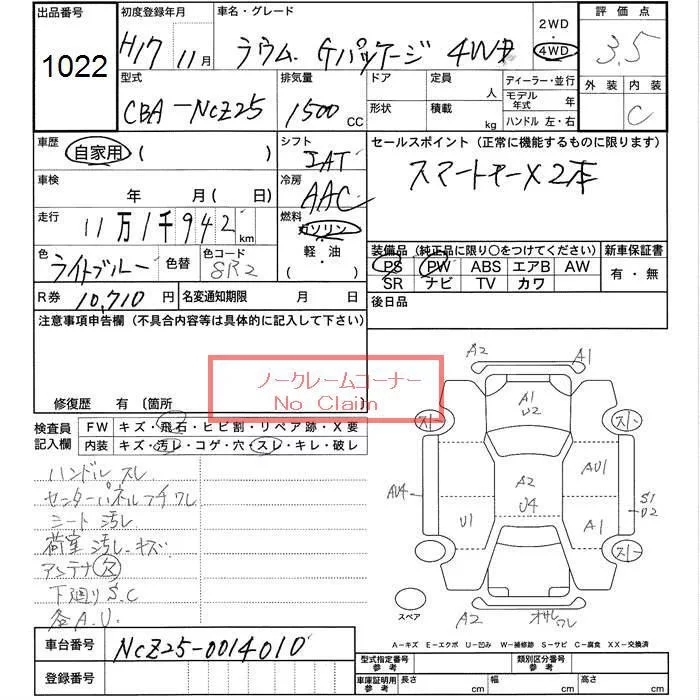 出品番号 初度登録年月 車名・グレード 2WD 4WD 評価点
1022 H17 11月 ラウム Gパッケージ 4WD 3.5
型式 排気量 ドア 定員 人 ディーラー・並行 外装 内装
CBA-NCZ25 1500 CC 形状 積載 kg モデル年式 年 C
ハンドル 左・右
車歴 自家用 ( ) シフト IAT セールスポイント(正常に機能するものに限ります)
車検 年 月(日) 冷房 AAC スマートキーX2本
走行 11万1千942 km 燃料 ガソリン 装備品(純正品に限り○をつけてください) 新車保証書
色 ライトブルー 色替 色コード 8R2 軽・油 PS PW ABS エアB AW 有・無
SR ナビ TV カワ
R券 10,710円 名変通知期限 月 日 後日品
注意事項申告欄(不具合内容等は具体的に記入して下さい)
ノークレームコーナー
No Claim
修復歴 有〔箇所 〕
検査員記入欄 FW キズ・飛石・ヒビ割・リペア跡・X要
内装 キズ・汚レ・コゲ・穴・スレ・キレ・破レ
ハンドル スレ
センターパネルフチワレ
シート 汚レ
荷室 汚レ キズ
アンテナ欠
下廻りS.C
各A.U.
A2 A1
A1
U2
A2
U4
AU4 U1 AU1 A1 S1
U2
スペア A2 オサレ ワレ
A-キズ E-エクボ U-凹み W-補修跡 S-サビ C-腐食 XX-交換済
車台番号 NCZ25-0014010
型式指定番号 参考 類別区分番号 参考
登録番号 車庫証明用 参考 長さ cm 幅 cm 高さ cm